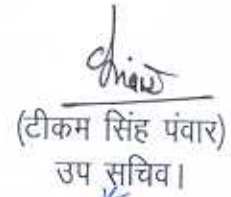 (टीकम सिंह पंवार)
उप सचिव।